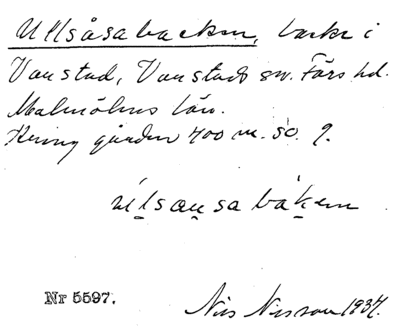 Ullsåsabacken, backe i
Vanstad, Vanstads sn. Färs hd.
Malmöhus län.
Kring gården 700 m. SO. 9.
ulsausabakem
Nr 5597.
Nils Nilsson 1934.